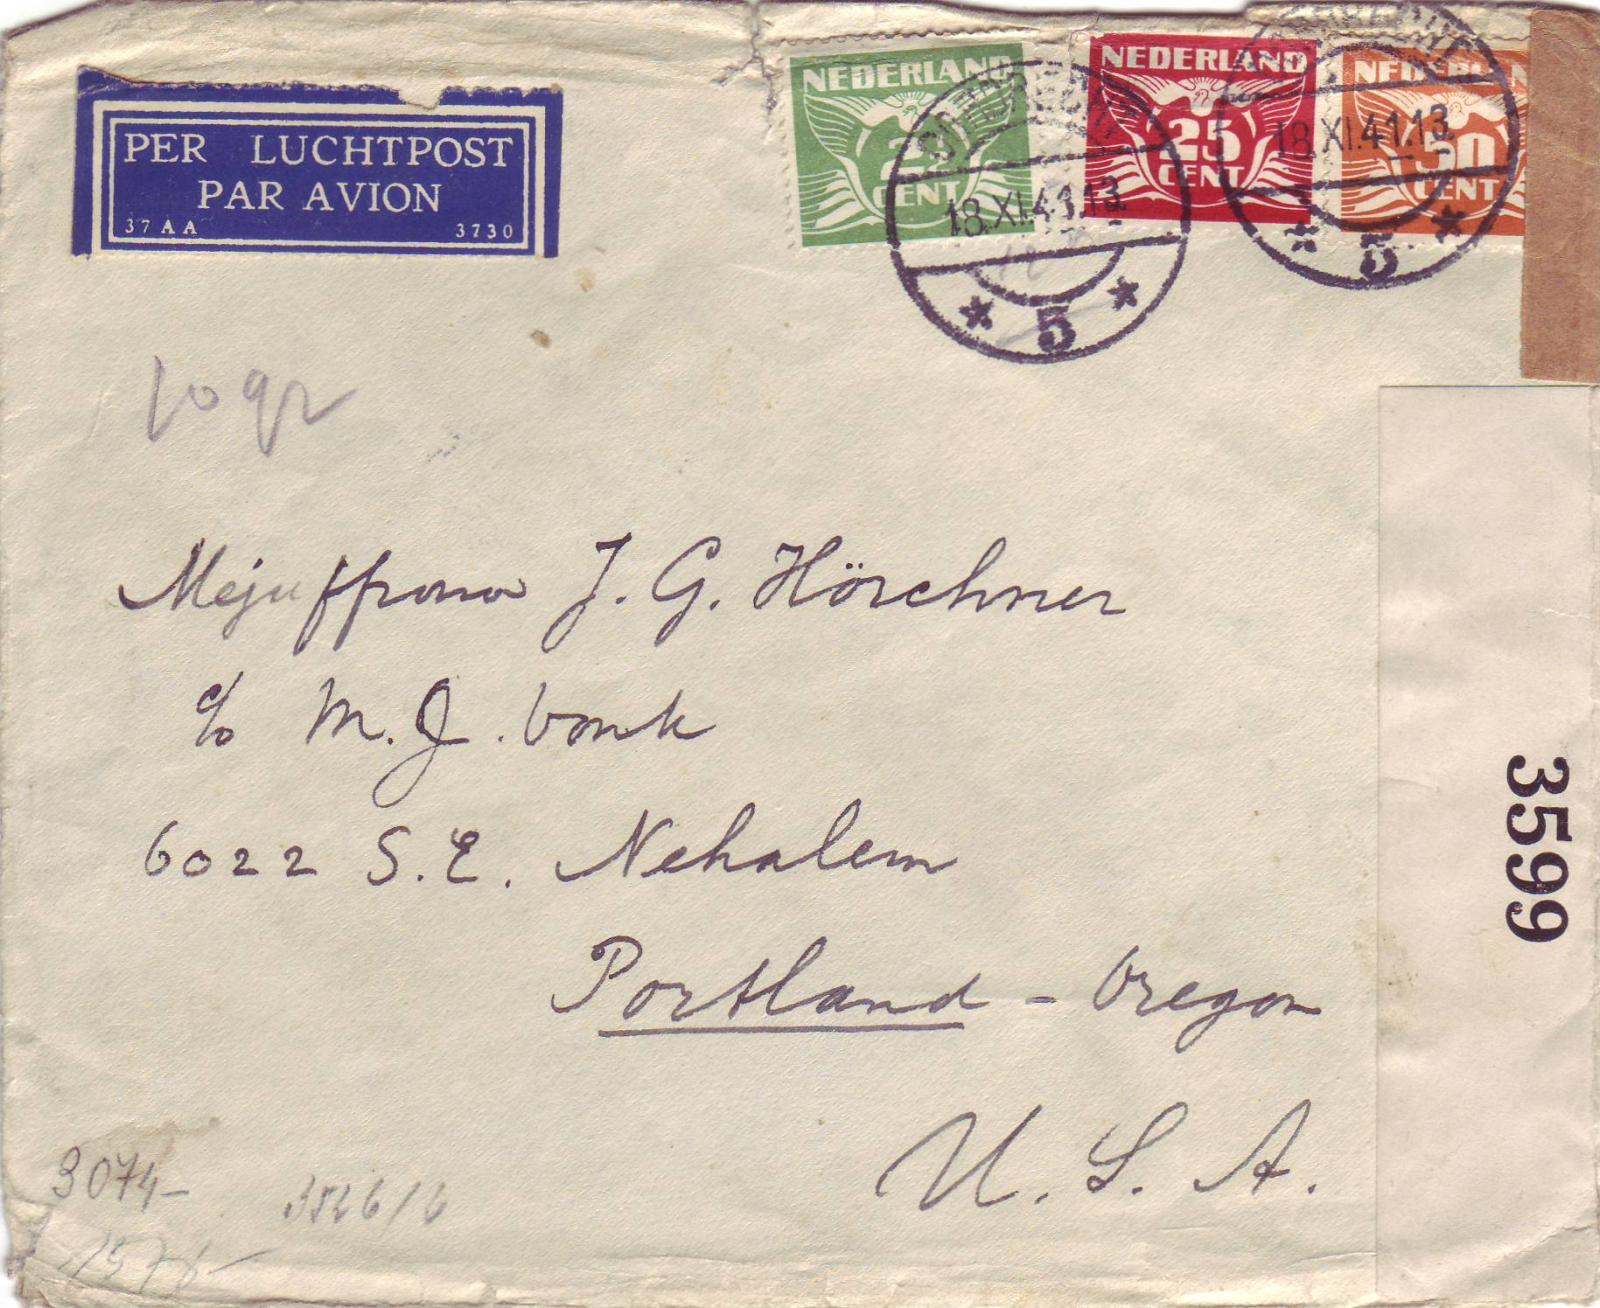 PER LUCHTPOST
PAR AVION
37 AA 3730
NEDERLAND
2
CENT
NEDERLAND
25
CENT
NEDERL
30
CENT
18.XI.41.13
5
18.XI.41.13
5
Mejuffrouw J. G. Hörchner
c/o M. J. Vonk
6022 S. E. Nehalem
Portland - Oregon
U. S. A.
3599
3074-